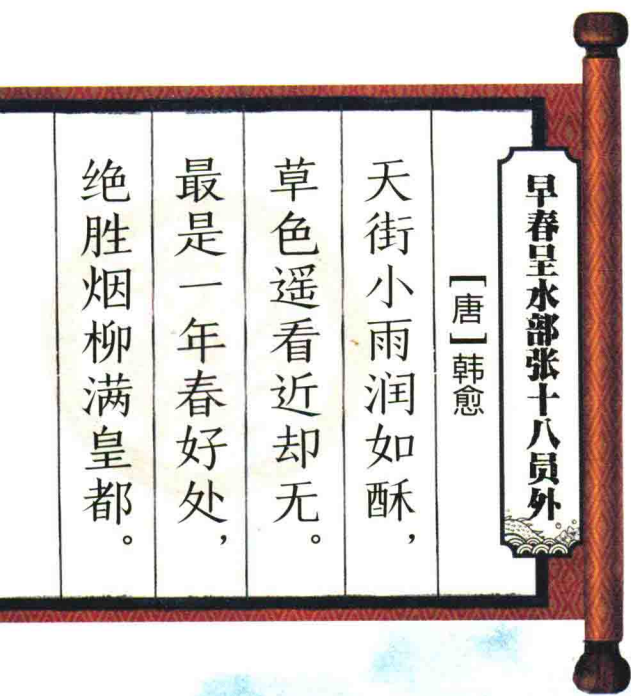 早春呈水部张十八员外
【唐】韩愈
天街小雨润如酥，
草色遥看近却无。
最是一年春好处，
绝胜烟柳满皇都。